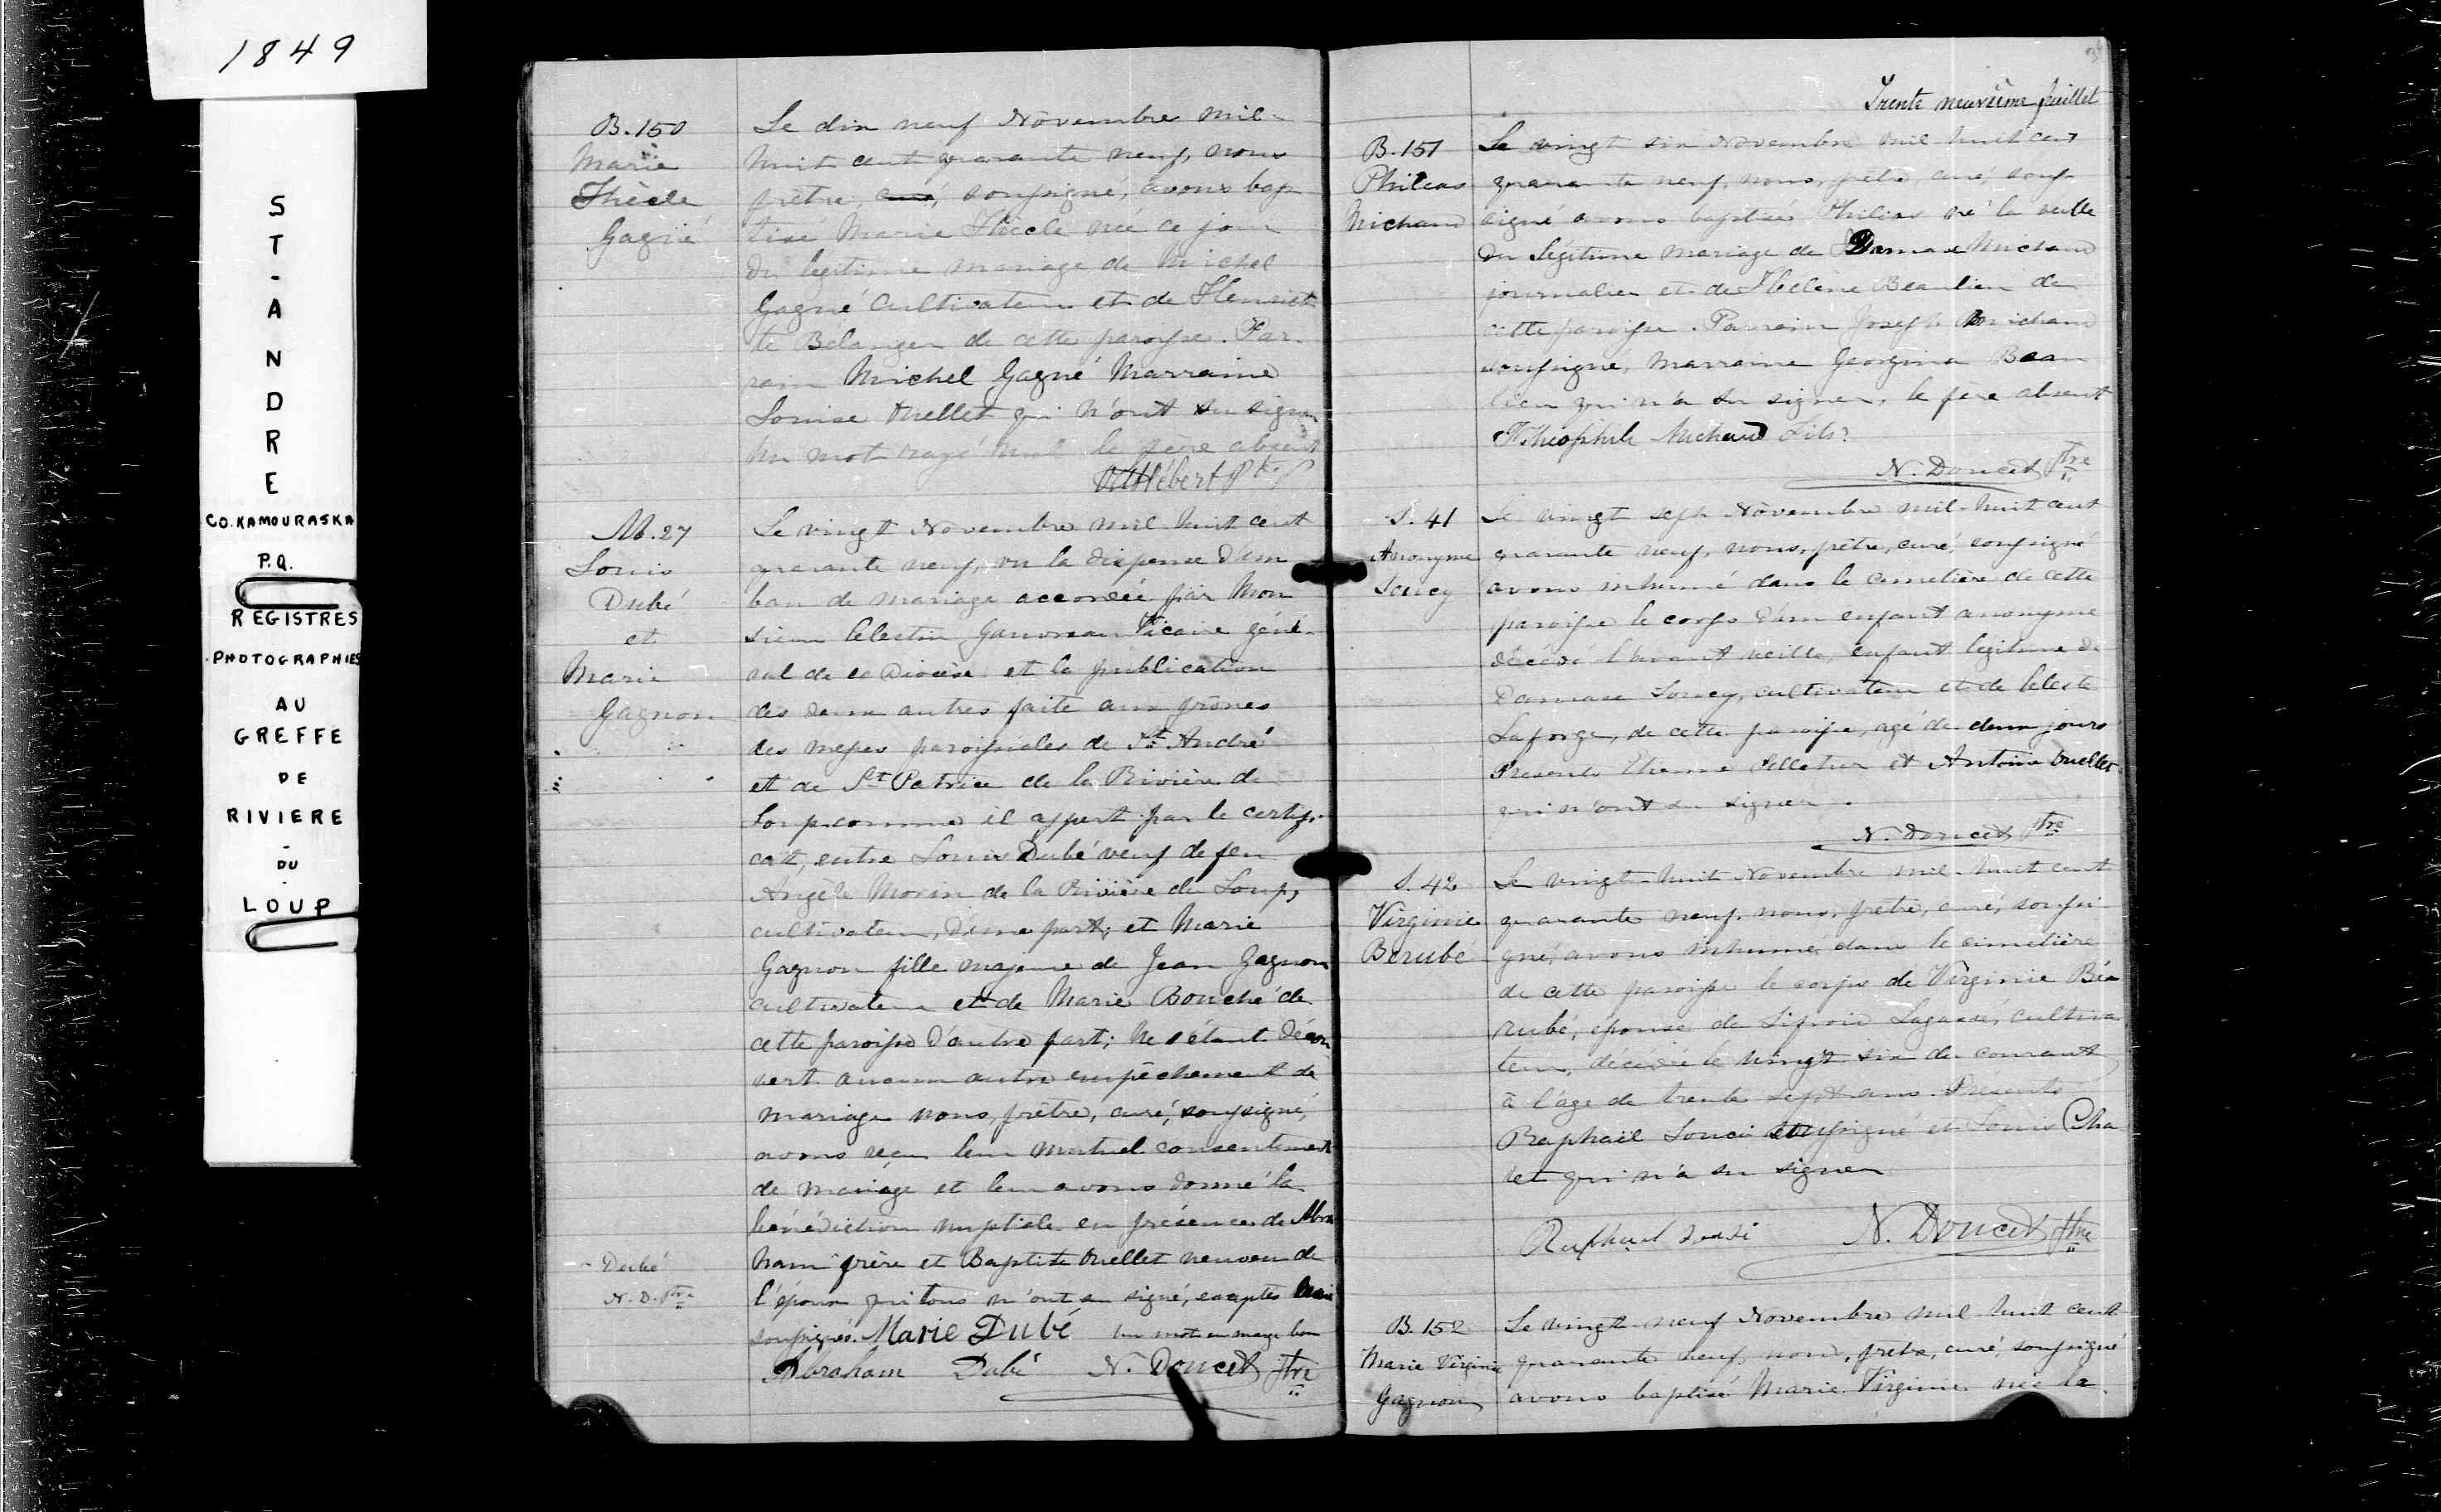 1849
ST-ANDRE
CO. KAMOURASKA
P.Q.
REGISTRES
PHOTOGRAPHIES
AU
GREFFE
DE
RIVIERE
-
DU
-
LOUP
B. 150
Marie
Thècle
Gagné
Le dix neuf Novembre mil-
huit cent quarante neuf, nous
prêtre, curé, soussigné, avons bap
tisé Marie Thècle née ce jour
du légitime mariage de Michel
Gagné Cultivateur et de Henriet
te Bélanger de cette paroisse. Par-
rain Michel Gagné Marraine
Louise Ouellet qui n'ont su signer
Un mot rayé nul le père absent
Hébert Ptre
M. 27
Louis
Dubé
et
Marie
Gagnon
Le vingt Novembre mil huit cent
quarante neuf, vu la dispense d'un
ban de mariage accordée par Mon
sieur Célestin Gauvreau Vicaire géné-
ral de ce Diocèse et la publication
des deux autres faite aux prônes
des messes paroissiales de St. André
et de St. Patrice de la Rivière du
Loup comme il appert par le certifi-
cat, entre Louis Dubé veuf de feu
Angèle Morin de la Rivière du Loup,
cultivateur, d'une part, et Marie
Gagnon fille majeure de Jean Gagnon
cultivateur et de Marie Bouché de
cette paroisse d'autre part; Ne s'étant décou
vert aucun autre empêchement de
mariage nous, prêtre, curé, soussigné,
avons reçu leur mutuel consentement
de mariage et leur avons donné la
bénédiction nuptiale en présence de Abra
ham frère et Baptiste Ouellet neuveu de
l'époux qui tous n'ont su signé, exceptés
soussignés. Marie Dubé Un mot en marge bon
Abraham Dubé N. Doucet Ptre
Dubé
N. D. Ptre
Trente neuvième feuillet
B. 151
Philéas
Michaud
Le vingt six Novembre mil huit cent
quarante neuf, nous, prêtre, curé, sous
signé avons baptisé Philéas né la veille
du légitime mariage de Damase Michaud
journalier et de Hélène Beaulieu de
cette paroisse. Parrain Joseph Michaud
soussigné, Marraine Georgina Beau
lieu qui n'a su signer, le père absent
Théophile Michaud Fils
N. Doucet Ptre
S. 41
Anonyme
Soucy
Le vingt sept Novembre mil-huit cent
quarante neuf, nous, prêtre, curé, soussigné
avons inhumé dans le cimetière de cette
paroisse le corps d'un enfant anonyme
décédé l'avant veille, enfant légitime de
Damase Soucy, cultivateur et de Céleste
Laforge, de cette paroisse, agé de deux jours
Présents Etienne Pelletier et Antoine Ouellet
qui n'ont su signer.
N. Doucet Ptre
S. 42
Virginie
Berubé
Le vingt-huit Novembre mil-huit cent
quarante neuf, nous, prêtre, curé, soussi
gné, avons inhumé dans le cimetière
de cette paroisse le corps de Virginie Bé
rubé, épouse de Lagacé, cultiva
teur, décédée le vingt six du courant
à l'age de trente sept ans. Présents
Raphaël Souci soussigné et Louis Cha
ret qui n'a su signer
Raphael Souci N. Doucet Ptre
B. 152
Marie Virginie
Gagnon
Le vingt-neuf Novembre mil huit cent
quarante neuf, nous, prêtre, curé, soussigné
avons baptisé Marie Virginie née la